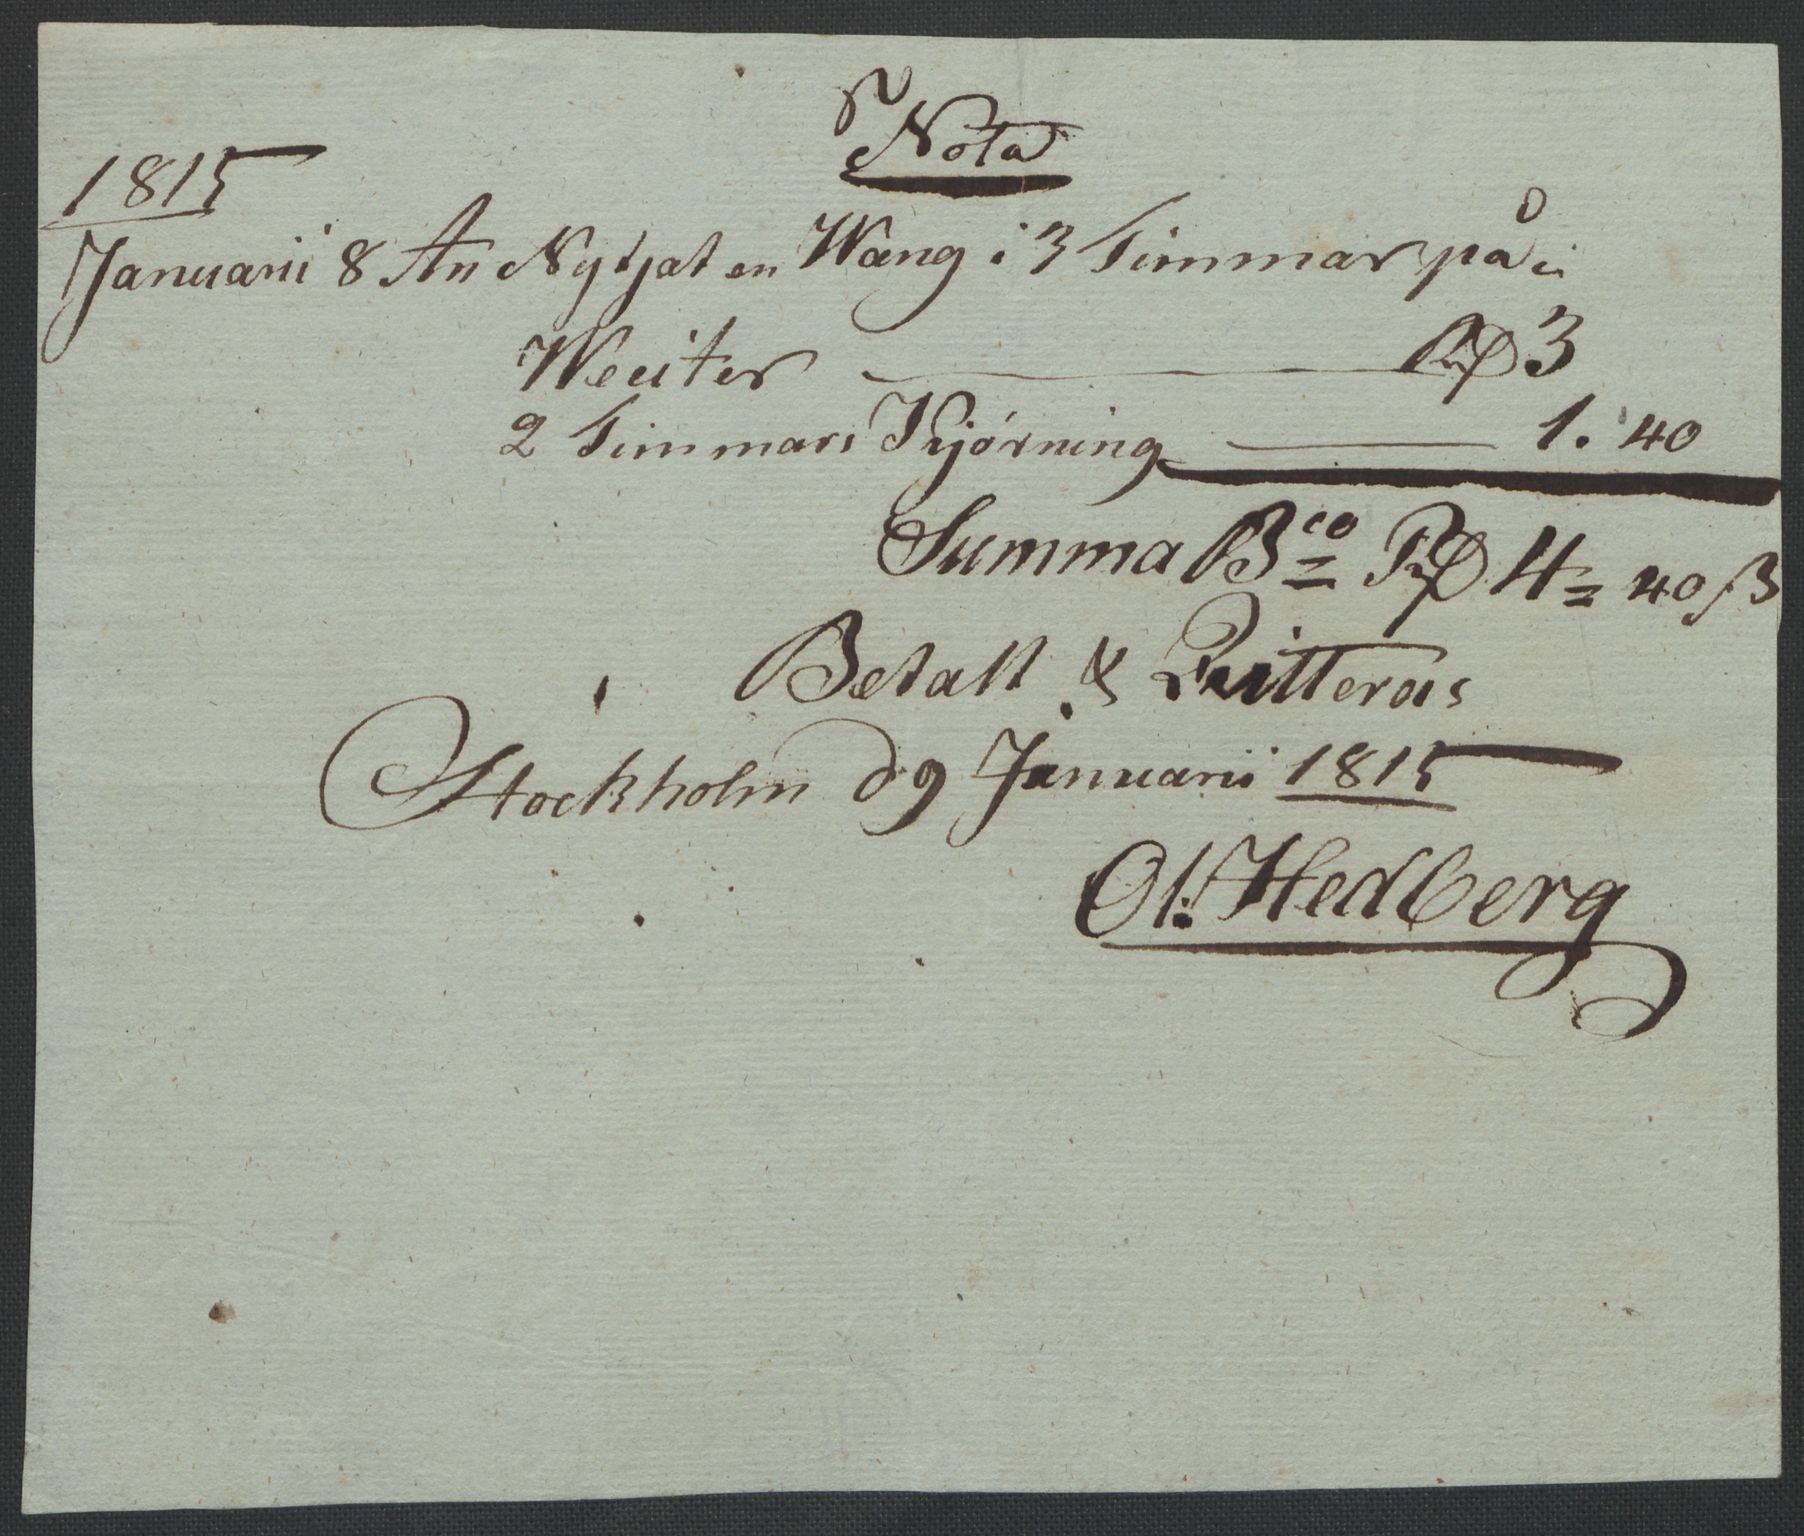 Nota
1815
Januarii 8 An Nyttjat en Wang i 3 Timmar på
Weiiter Rd 3
2 Timmars Kjörning 1. 40
Summa Bco Rd 4 = 40 ß
Betalt & Quitteras
Stockholm d 9 Januarii 1815
Ol: Hedberg